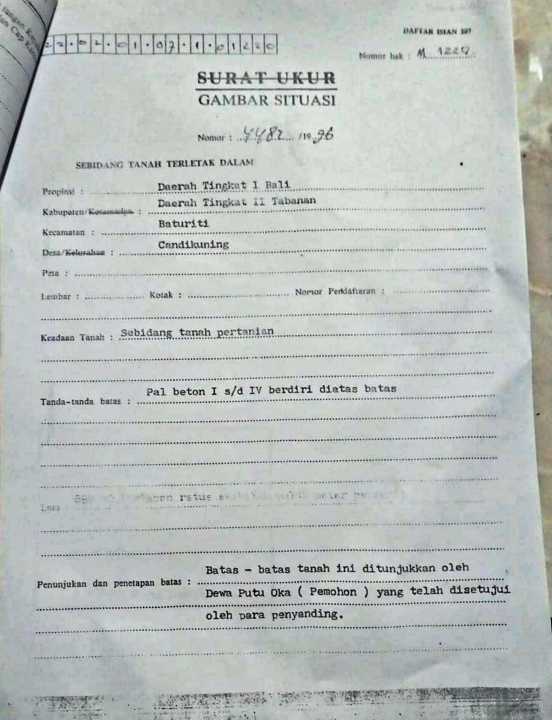 DAFTAR ISIAN 207
22.02.01.07.1.01220
Nomor hak : M 1229
SURAT UKUR
GAMBAR SITUASI
Nomor : 4482 /1996
SEBIDANG TANAH TERLETAK DALAM
Propinsi : Daerah Tingkat I Bali
Kabupaten/Kotamadya : Daerah Tingkat II Tabanan
Kecamatan : Baturiti
Desa/Kelurahan : Candikuning
Peta :
Lembar : Kotak : Nomor Pendaftaran :
Keadaan Tanah : Sebidang tanah pertanian
Tanda-tanda batas : Pal beton I s/d IV berdiri diatas batas
Luas ratus meter
Penunjukan dan penetapan batas : Batas - batas tanah ini ditunjukkan oleh
Dewa Putu Oka ( Pemohon ) yang telah disetujui
oleh para penyanding.